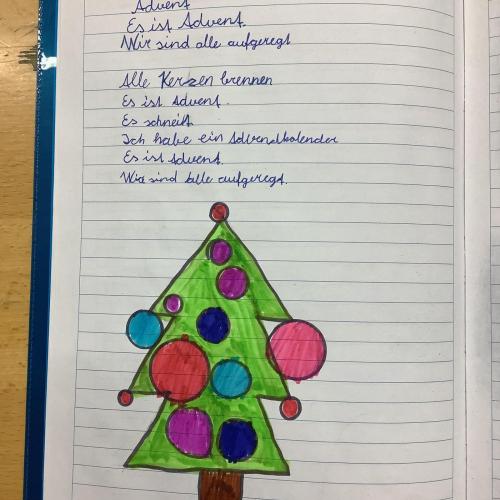 Advent
Es ist Advent.
Wir sind alle aufgeregt
Alle Kerzen brennen
Es ist Advent.
Es schneit.
Ich habe ein Adventkalender
Es ist Advent.
Wir sind alle aufgeregt.